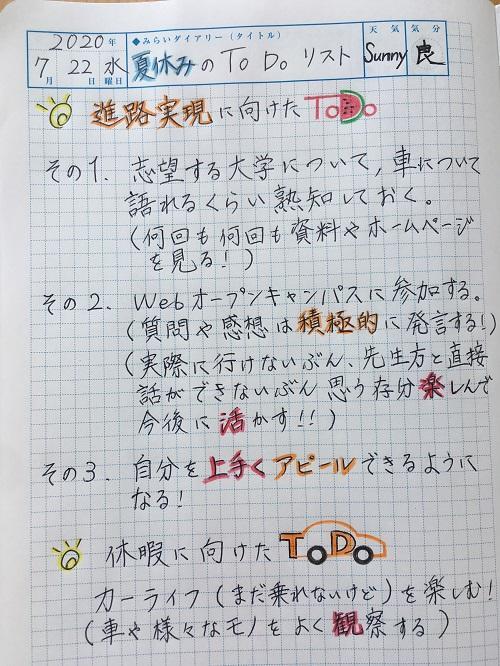 2020年
7月22日水曜日
◆みらいダイアリー(タイトル)
夏休みのToDoリスト
天気
Sunny
気分
良
進路実現に向けたToDo
その1. 志望する大学について,車について
語れるくらい熟知しておく。
(何回も何回も資料やホームページ
を見る!)
その2. Webオープンキャンパスに参加する。
(質問や感想は積極的に発言する!)
(実際に行けないぶん、先生方と直接
話ができないぶん思う存分楽しんで
今後に活かす!!)
その3. 自分を上手くアピールできるように
なる!
休暇に向けたToDo
カーライフ(まだ乗れないけど)を楽しむ!
(車や様々なモノをよく観察する)